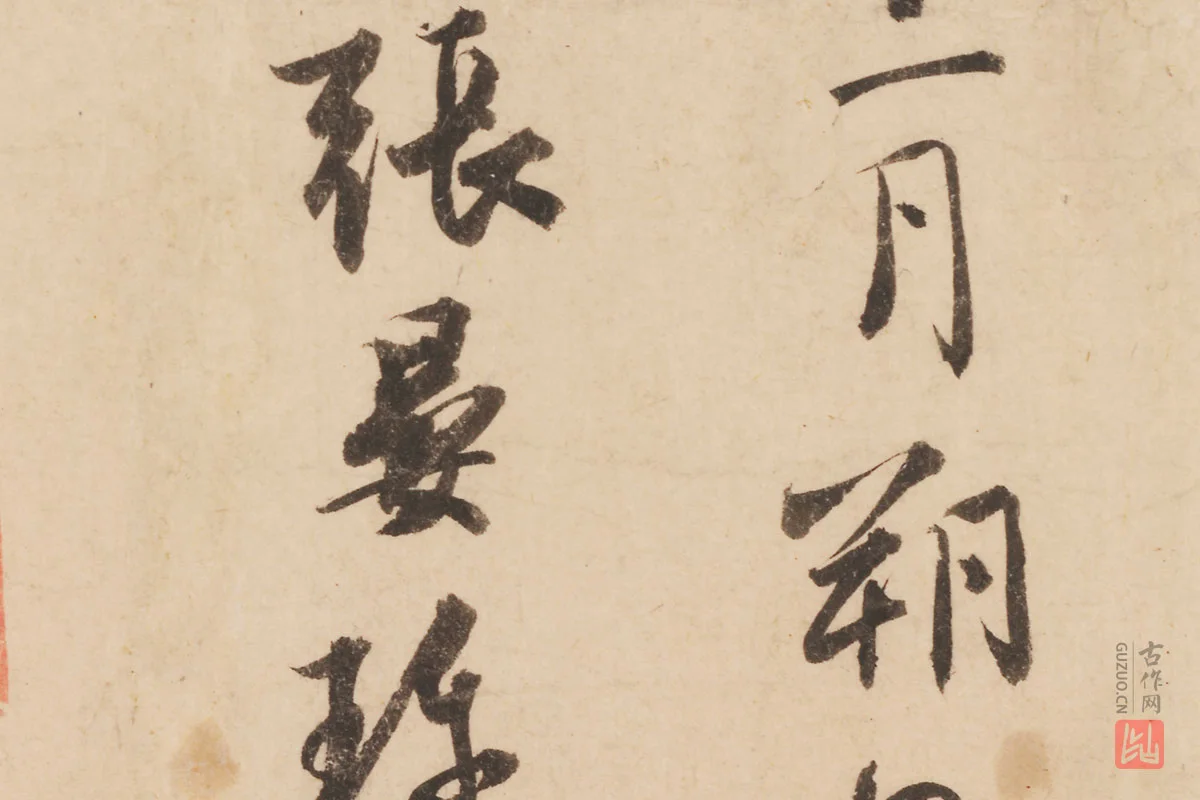 一月朔
張晏
古作网
GUZUO.CN